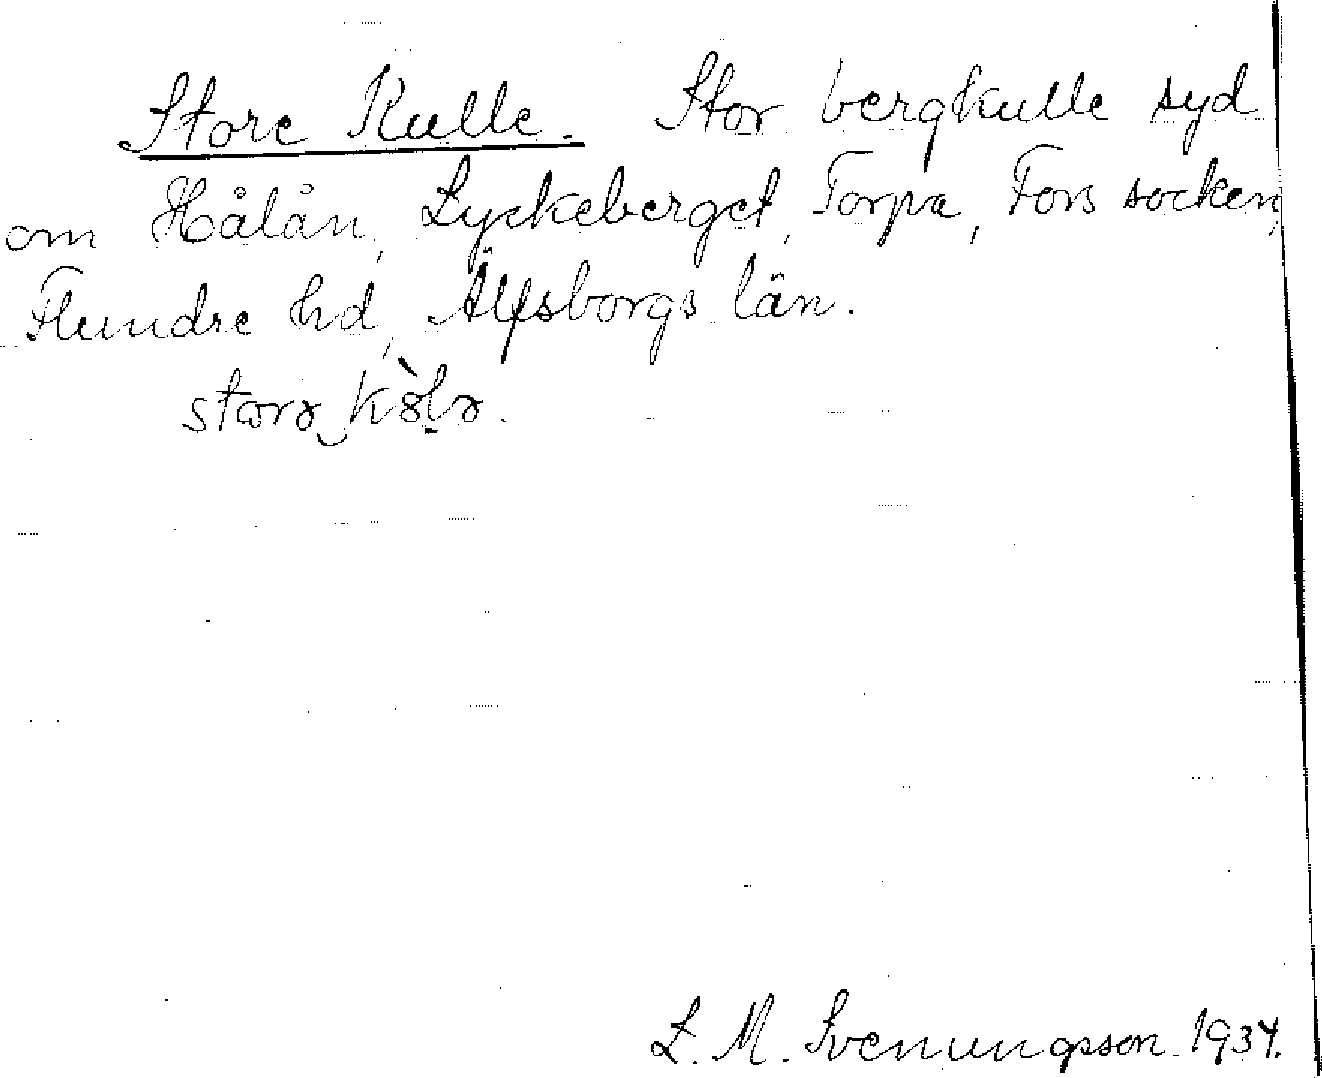 Store Kulle. Stor bergkulle syd
om Hålån, Lyckeberget, Torpa, Fors socken,
Flundre hd, Älfsborgs län.
L. M. Svenungsson 1934.